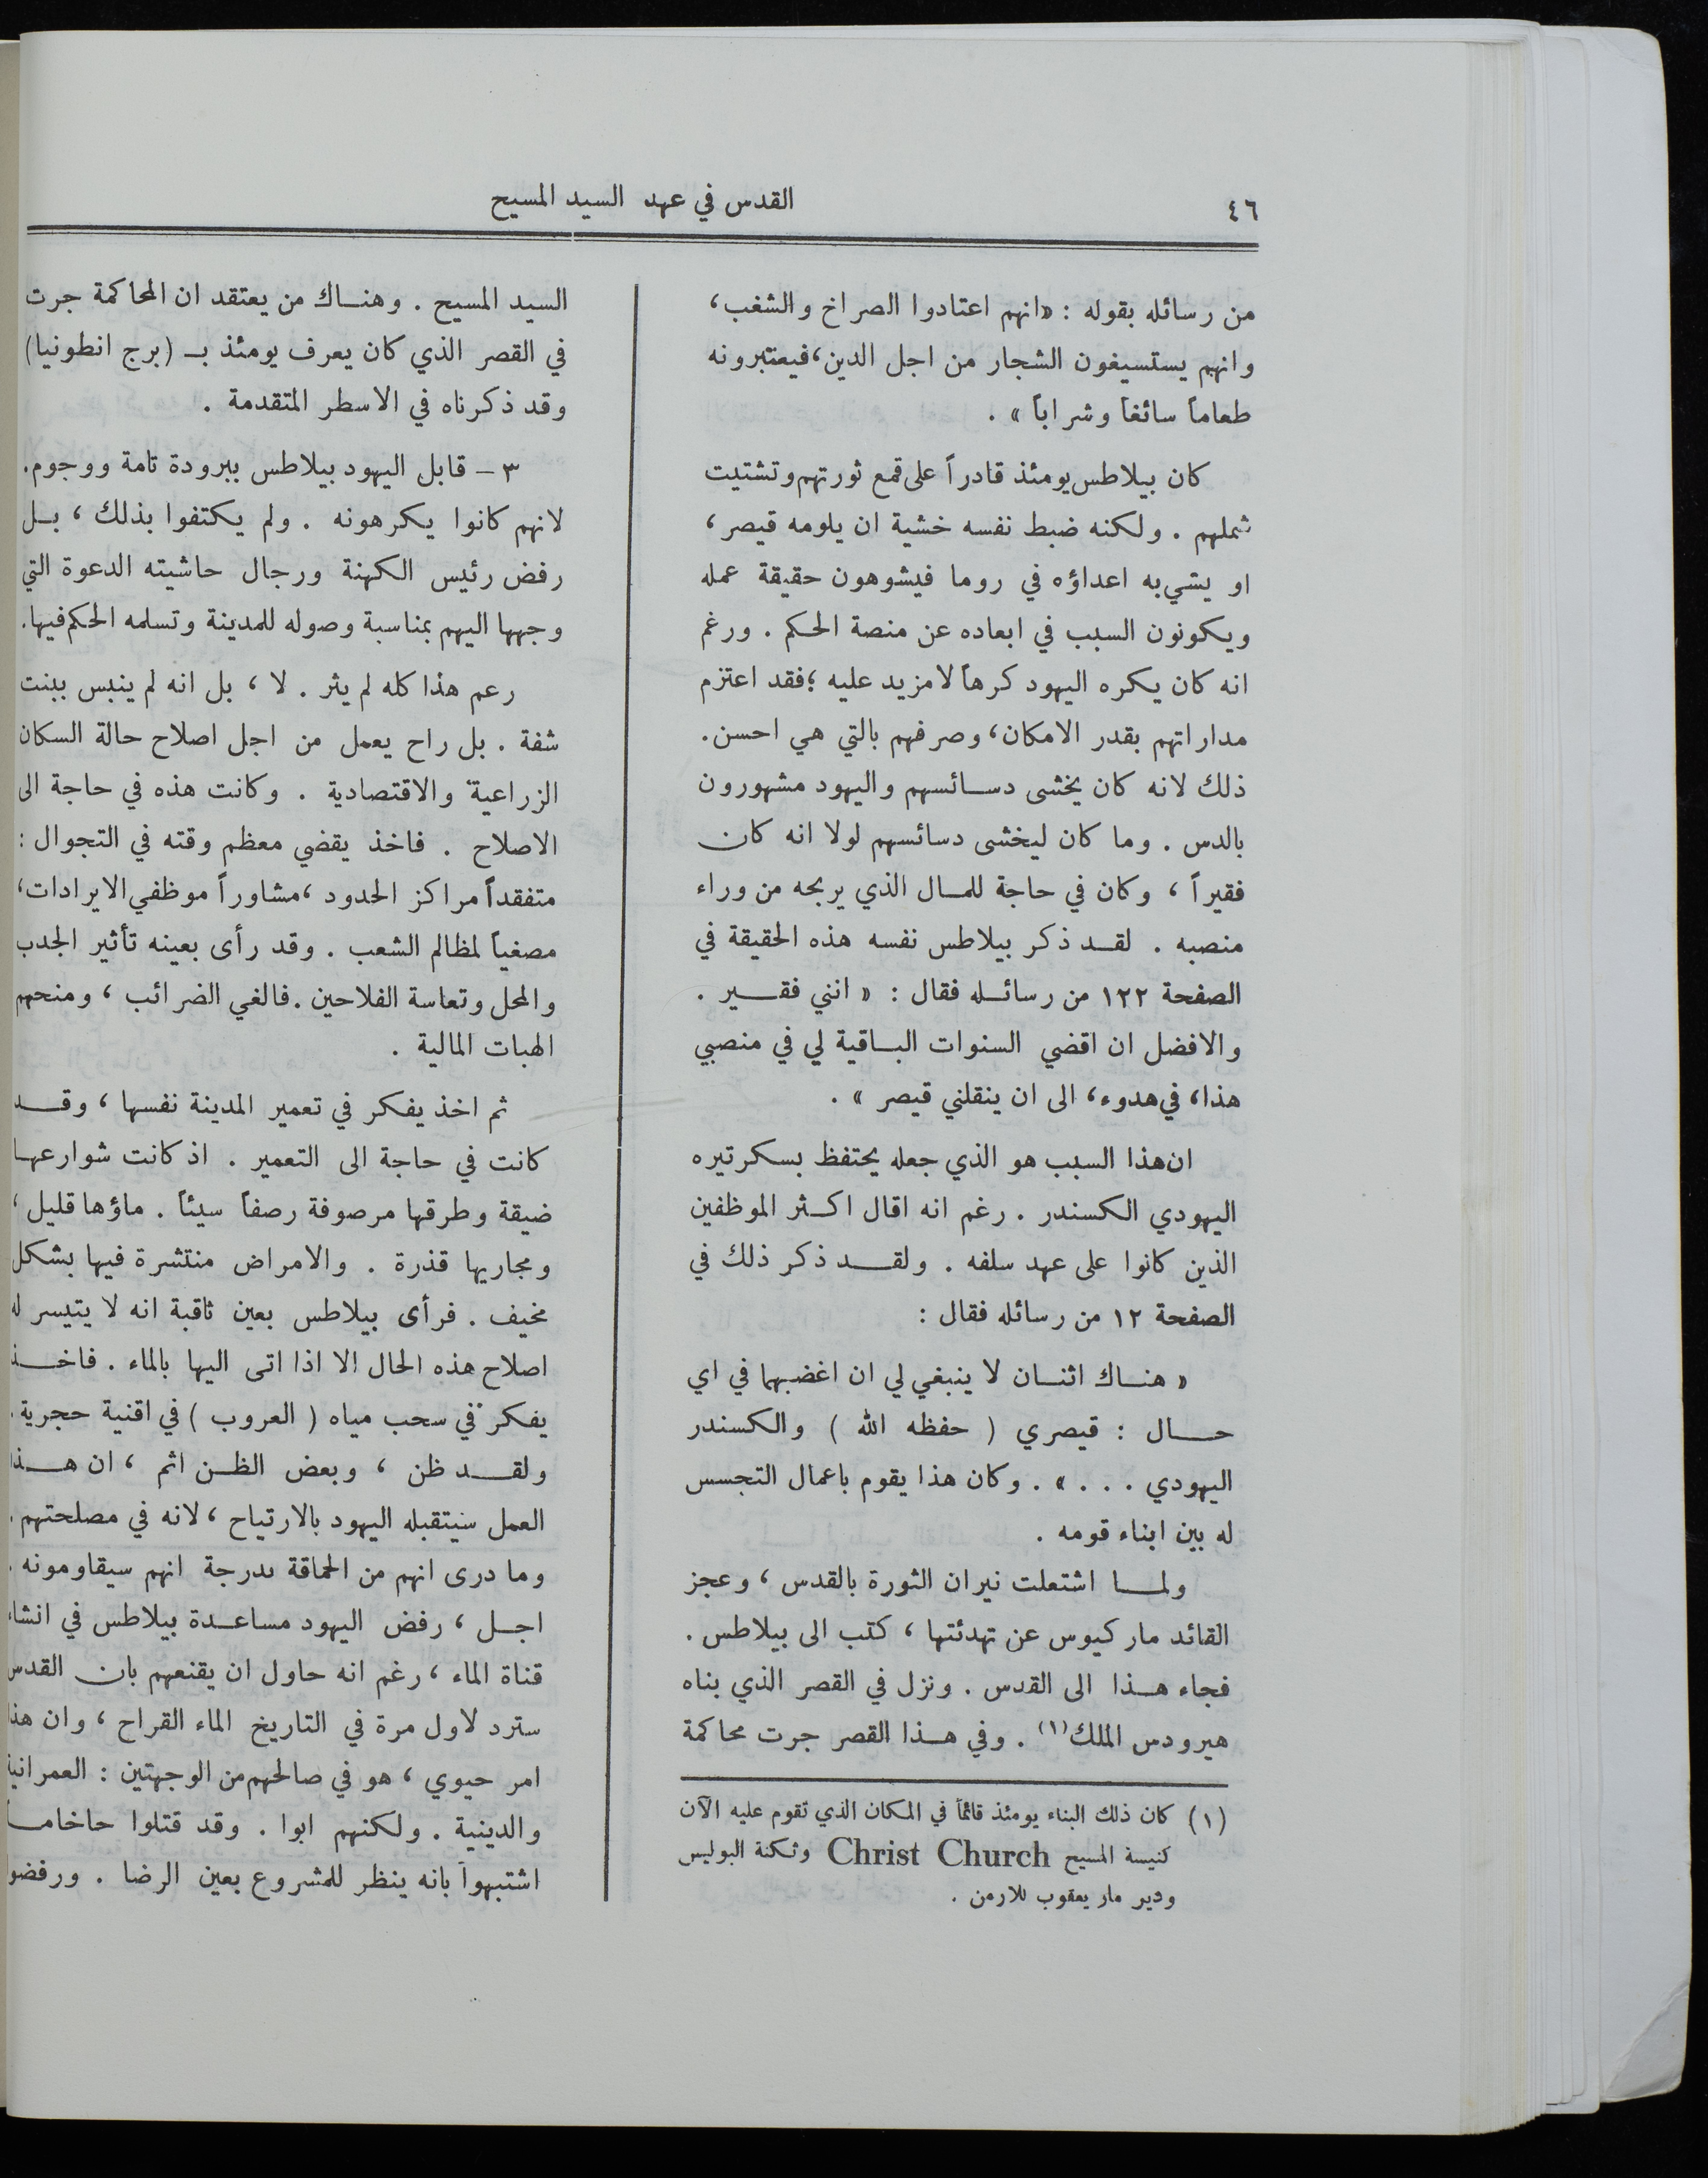 ٤٦
القدس في عهد السيد المسيح
من رسائله بقوله : «انهم اعتادوا الصراخ والشغب،
وانهم يستسيغون الشجار من اجل الدين، فيعتبرونه
طعاماً سائغاً وشراباً » .
كان بيلاطس يومئذ قادراً على قمع ثورتهم وتشتيت
شملهم . ولكنه ضبط نفسه خشية ان يلومه قيصر ،
او يشي به اعداؤه في روما فيشوهون حقيقة عمله
ويكونون السبب في ابعاده عن منصة الحكم . ورغم
انه كان يكره اليهود كرهاً لا مزيد عليه ؛ فقد اعتزم
مداراتهم بقدر الامكان، وصرفهم بالتي هي احسن.
ذلك لانه كان يخشى دسائسهم واليهود مشهورون
بالدس . وما كان ليخشى دسائسهم لولا انه كان
فقيراً ، وكان في حاجة للمال الذي يربحه من وراء
منصبه . لقد ذكر بيلاطس نفسه هذه الحقيقة في
الصفحة ١٢٢ من رسائله فقال : « انني فقير .
والافضل ان اقضي السنوات الباقية لي في منصبي
هذا، في هدوء، الى ان ينقلني قيصر » .
ان هذا السبب هو الذي جعله يحتفظ بسكرتيره
اليهودي الكسندر . رغم انه اقال اكثر الموظفين
الذين كانوا على عهد سلفه . ولقد ذكر ذلك في
الصفحة ١٢ من رسائله فقال :
« هناك اثنان لا ينبغي لي ان اغضبهما في اي
حال : قيصري ( حفظه الله ) والكسندر
اليهودي . . . » . وكان هذا يقوم باعمال التجسس
له بين ابناء قومه .
ولما اشتعلت نيران الثورة بالقدس ، وعجز
القائد ماركيوس عن تهدئتها ، كتب الى بيلاطس .
فجاء هذا الى القدس . ونزل في القصر الذي بناه
هيرودس الملك(١) . وفي هذا القصر جرت محاكمة
(١) كان ذلك البناء يومئذ قائماً في المكان الذي تقوم عليه الآن
كنيسة المسيح Christ Church وثكنة البوليس
ودير مار يعقوب للارمن .
السيد المسيح . وهناك من يعتقد ان المحاكمة جرت
في القصر الذي كان يعرف يومئذ بـ (برج انطونيا)
وقد ذكرناه في الاسطر المتقدمة .
٣ – قابل اليهود بيلاطس ببرودة تامة ووجوم.
لانهم كانوا يكرهونه . ولم يكتفوا بذلك ، بل
رفض رئيس الكهنة ورجال حاشيته الدعوة التي
وجهها اليهم بمناسبة وصوله للمدينة وتسلمه الحكم فيها.
رغم هذا كله لم يثر . لا ، بل انه لم ينبس ببنت
شفة . بل راح يعمل من اجل اصلاح حالة السكان
الزراعية والاقتصادية . وكانت هذه في حاجة الى
الاصلاح . فاخذ يقضي معظم وقته في التجوال :
متفقداً مراكز الحدود ، مشاوراً موظفي الايرادات،
مصغياً لمظالم الشعب . وقد رأى بعينه تأثير الجدب
والمحل وتعاسة الفلاحين . فالغي الضرائب ، ومنحهم
الهبات المالية .
ثم اخذ يفكر في تعمير المدينة نفسها ، وقد
كانت في حاجة الى التعمير . اذ كانت شوارعها
ضيقة وطرقها مرصوفة رصفاً سيئاً . ماؤها قليل ،
ومجاريها قذرة . والامراض منتشرة فيها بشكل
مخيف . فرأى بيلاطس بعين ثاقبة انه لا يتيسر له
اصلاح هذه الحال الا اذا اتى اليها بالماء . فاخذ
يفكر في سحب مياه ( العروب ) في اقنية حجرية .
ولقد ظن ، وبعض الظن اثم ، ان هذا
العمل سيتقبله اليهود بالارتياح ، لانه في مصلحتهم .
وما درى انهم من الحماقة بدرجة انهم سيقاومونه .
اجل ، رفض اليهود مساعدة بيلاطس في انشاء
قناة الماء ، رغم انه حاول ان يقنعهم بان القدس
سترد لاول مرة في التاريخ الماء القراح ، وان هذا
امر حيوي ، هو في صالحهم من الوجهتين : العمرانية
والدينية . ولكنهم ابوا . وقد قتلوا حاخاماً
اشتبهوا بانه ينظر للمشروع بعين الرضا . ورفضوا